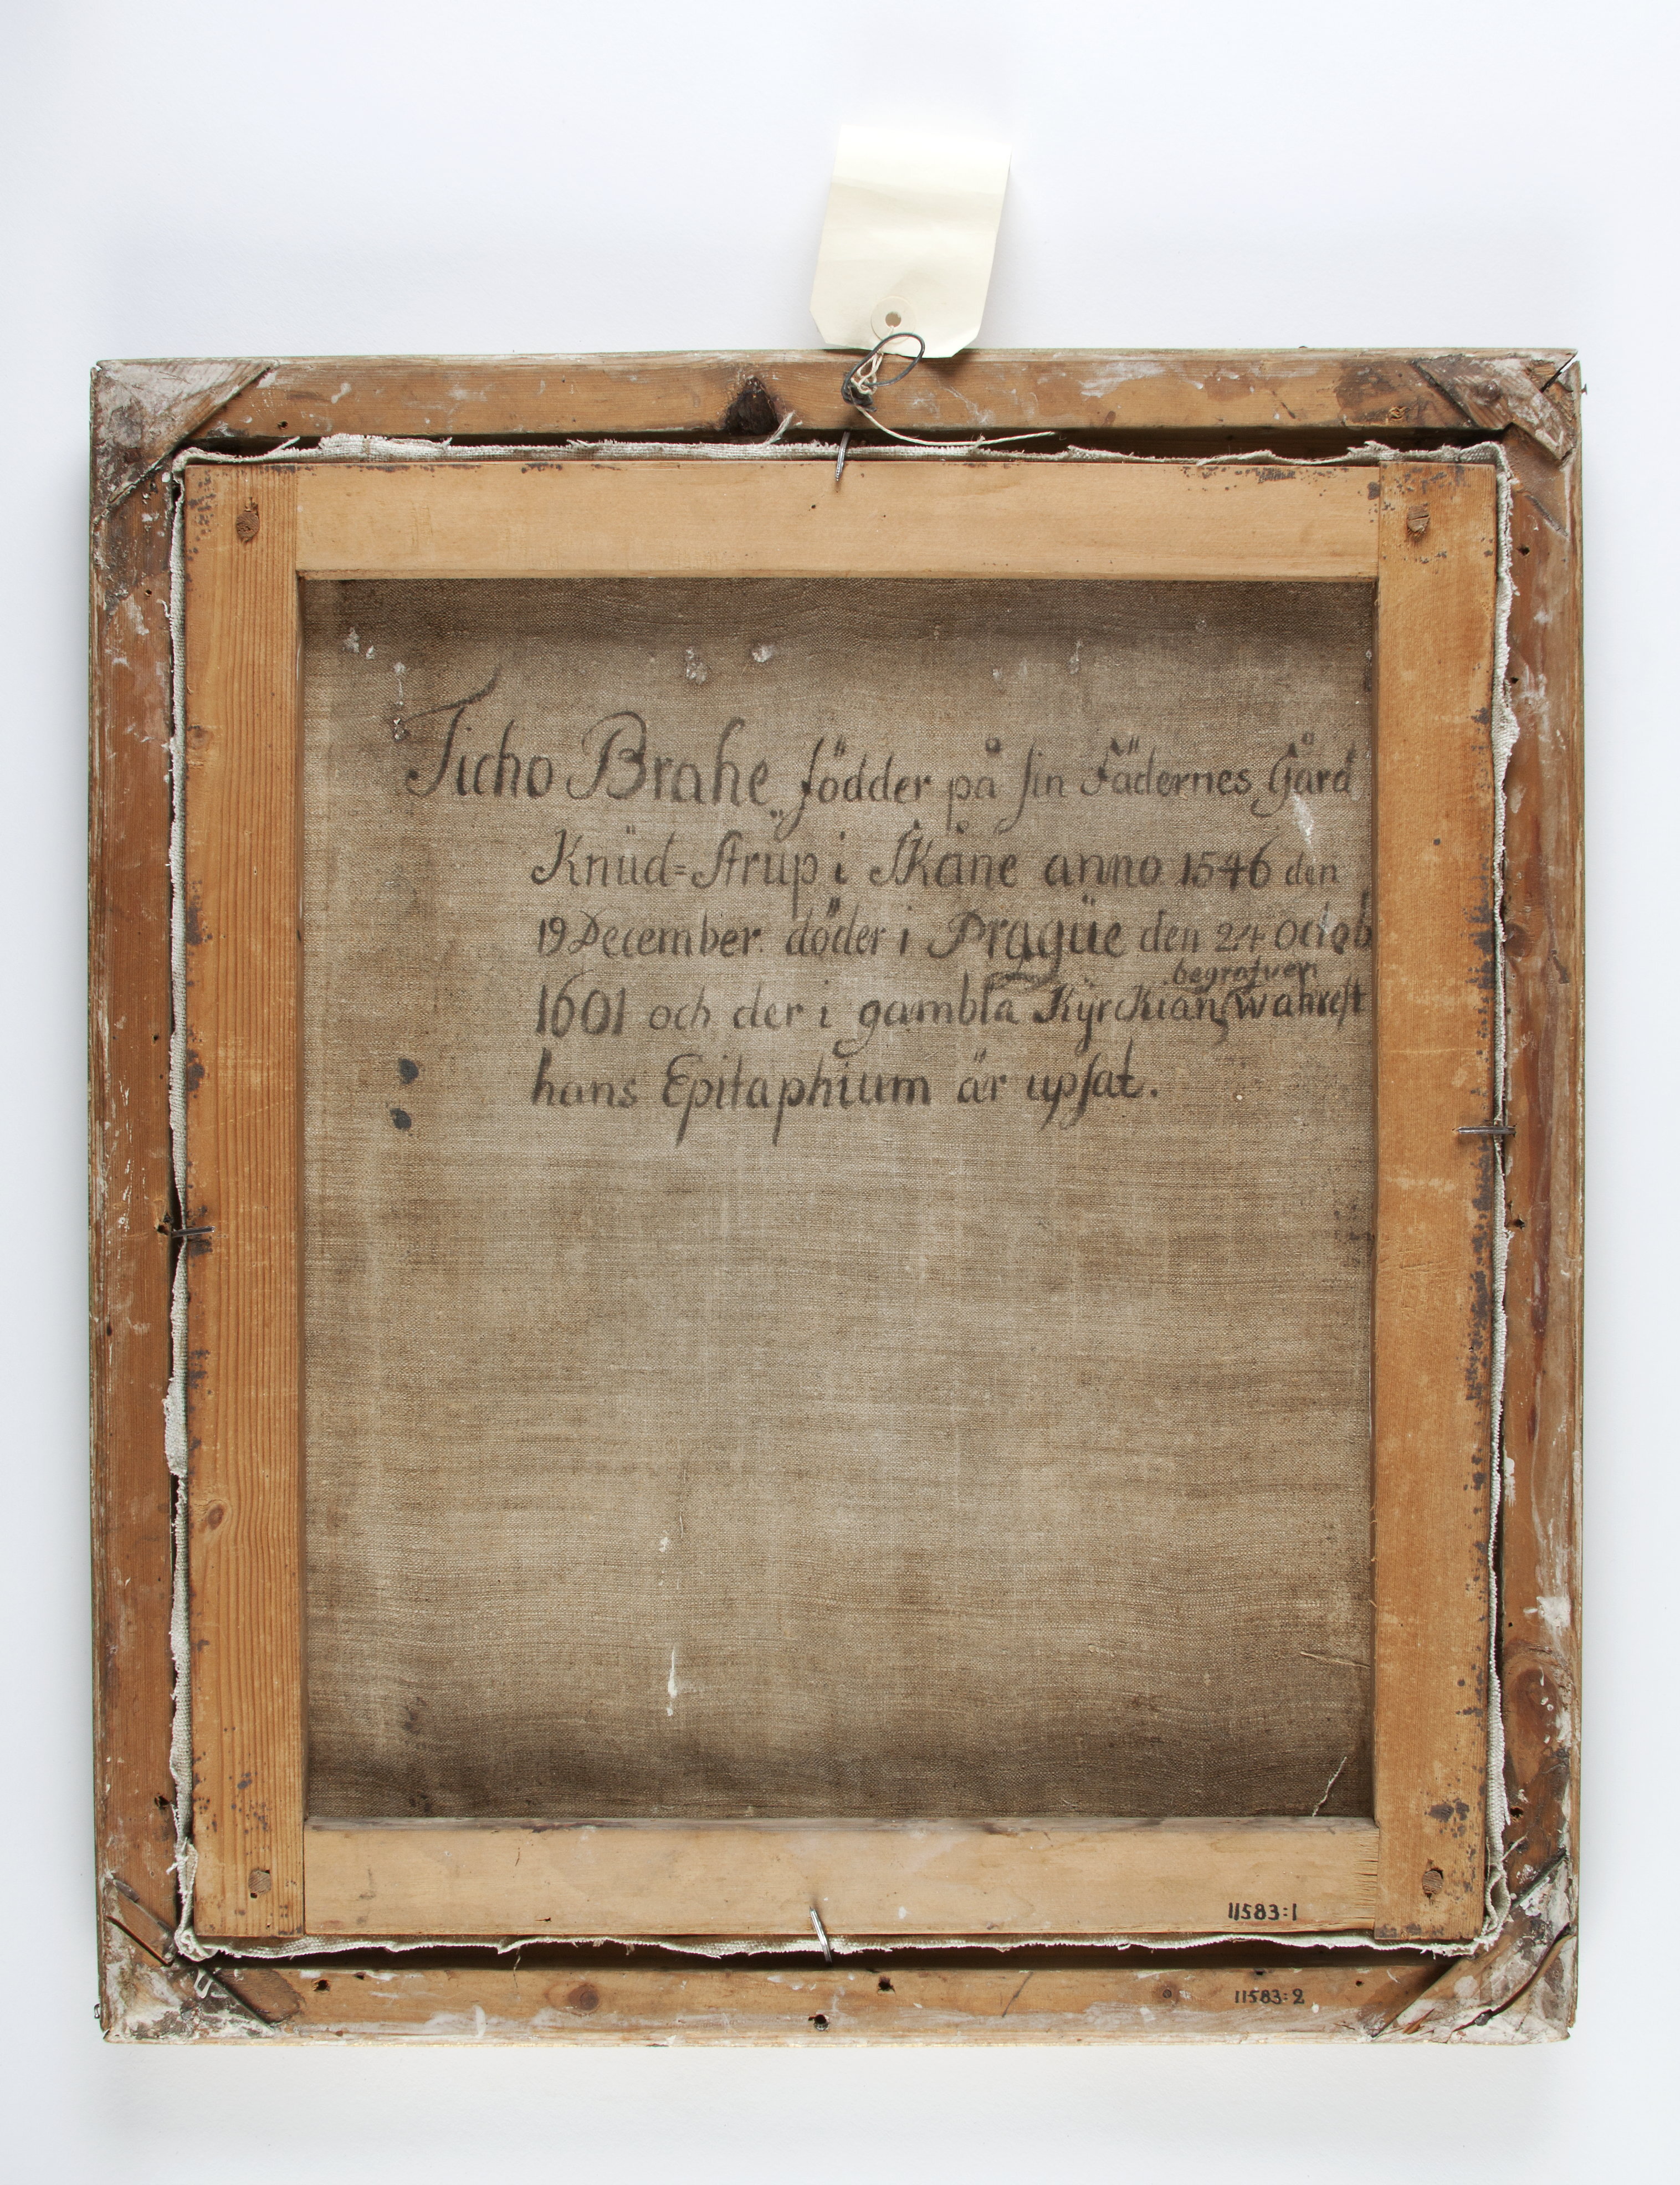 Ticho Brahe, födder på sin Fädernes Gård
Knüd=strüp i Skåne anno 1546 den
19 December. döder i Pragüe den 24 Octob
begrafven
1601 och der i gambla Kÿrckian, wahrest
hans Epitaphium är upsat.
11583:1
11583:2